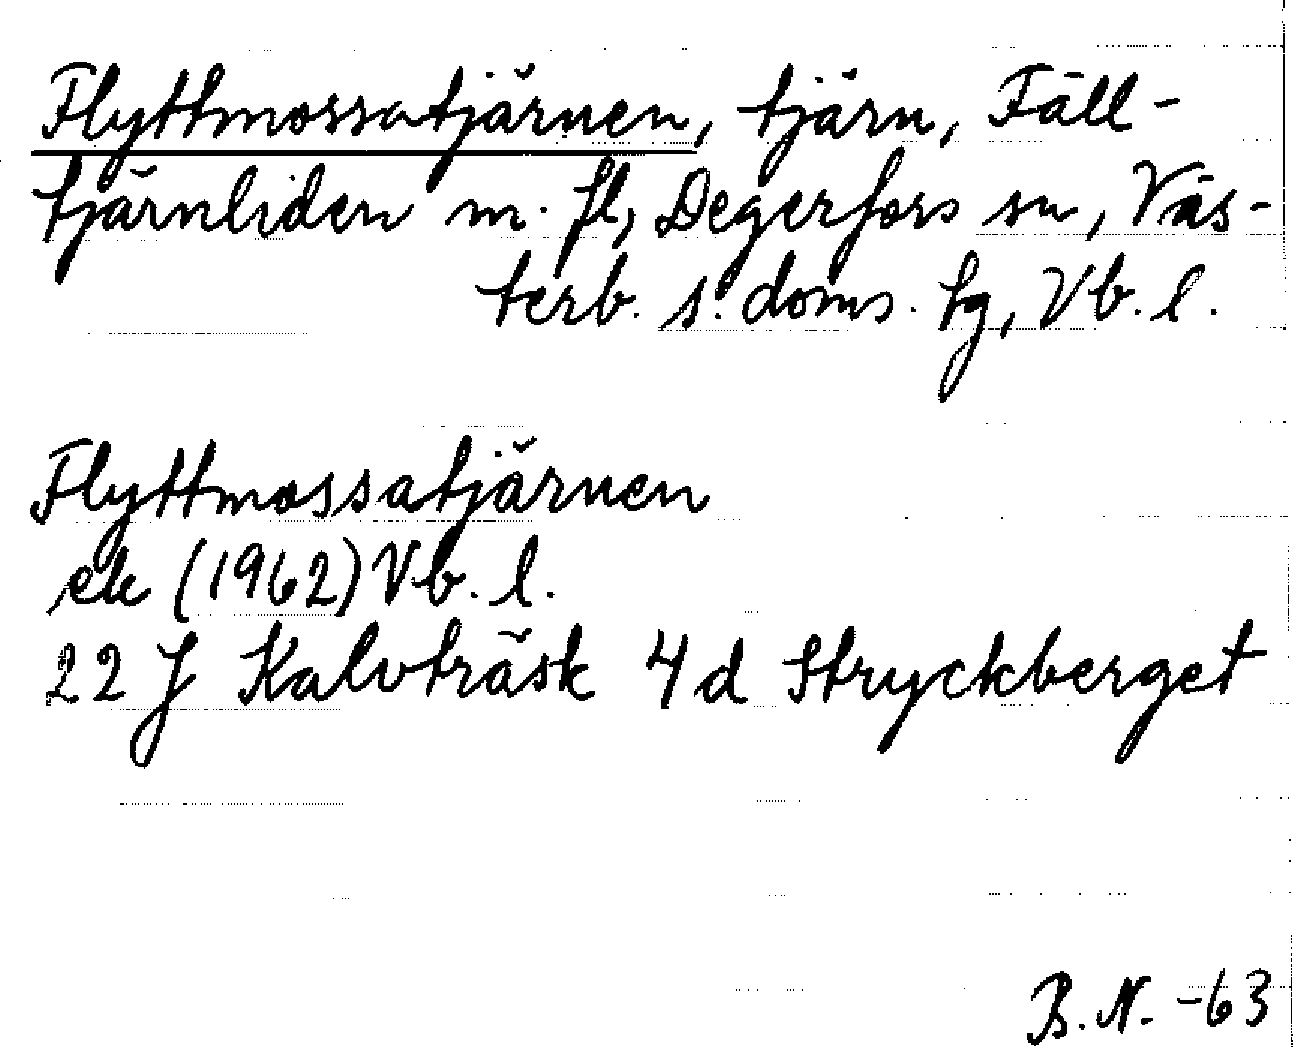 Flyttmossatjärnen, tjärn, Fäll-
tjärnliden m. fl, Degerfors sn, Väs-
terb. s. doms. tg, Vb. l.
Flyttmossatjärnen
ek (1962) Vb. l.
22 J Kalvträsk 4 d Stryckberget
B. N. -63